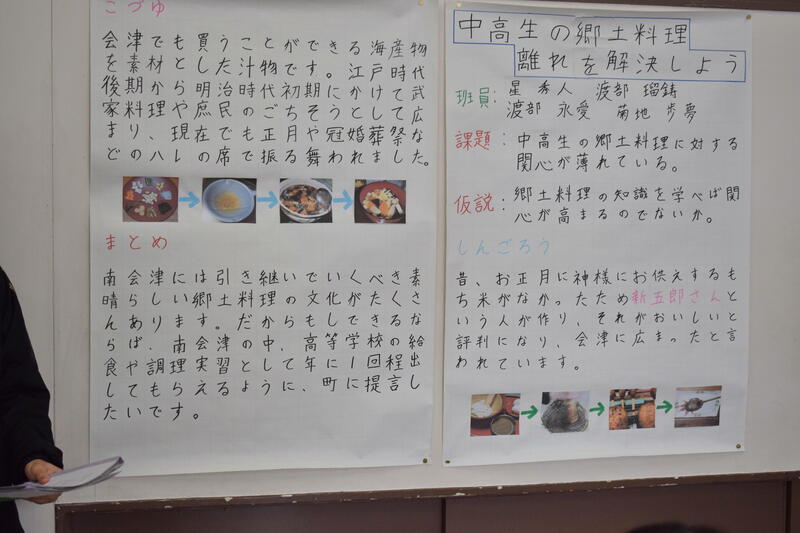 中高生の郷土料理
離れを解決しよう
班員：星 秀人 渡部 瑠鋳
渡部 永愛 菊地 歩夢
課題：中高生の郷土料理に対する
関心が薄れている。
仮説：郷土料理の知識を学べば関
心が高まるのでないか。
しんごろう
昔、お正月に神様にお供えするも
ち米がなかったため新五郎さんと
いう人が作り、それがおいしいと
評判になり、会津に広まったと言
われています。
こづゆ
会津でも買うことができる海産物
を素材とした汁物です。江戸時代
後期から明治時代初期にかけて武
家料理や庶民のごちそうとして広
まり、現在でも正月や冠婚葬祭な
どのハレの席で振る舞われました。
まとめ
南会津には引き継いでいくべき素
晴らしい郷土料理の文化がたくさ
んあります。だからもしできるな
らば、南会津の中、高等学校の給
食や調理実習として年に1回程出
してもらえるように、町に提言し
たいです。